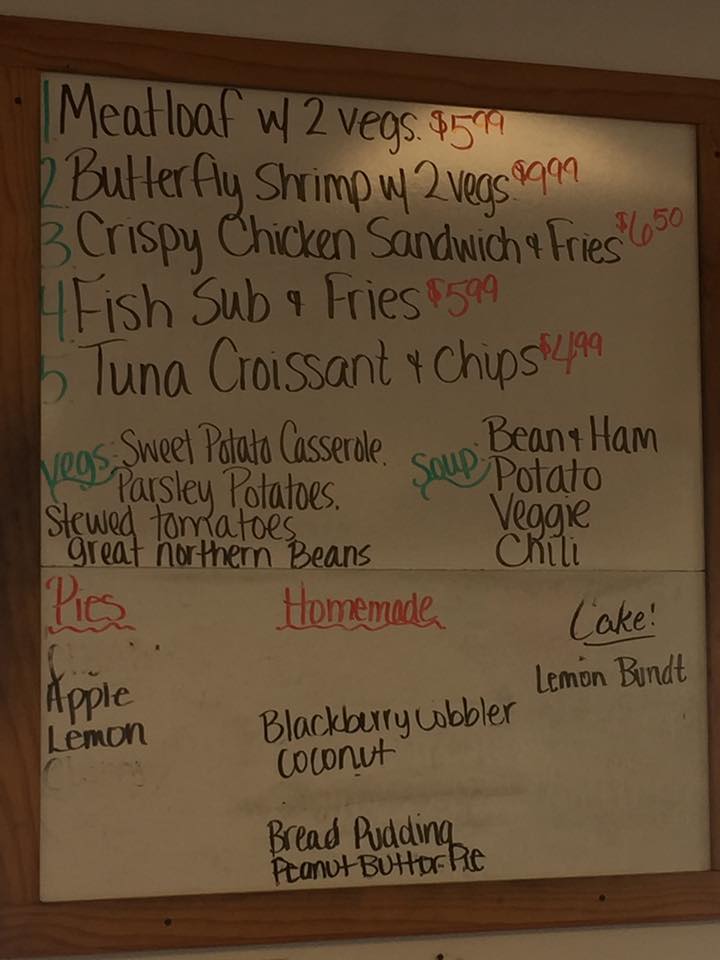 1 Meatloaf w/ 2 vegs. $5.99
2 Butterfly Shrimp w/ 2 vegs. $9.99
3 Crispy Chicken Sandwich & Fries $6.50
4 Fish Sub & Fries $5.99
5 Tuna Croissant & Chips $4.99
Vegs: Sweet Potato Casserole.
Parsley Potatoes.
Stewed tomatoes
great northern Beans
Soup: Bean & Ham
Potato
Veggie
Chili
Pies
Apple
Lemon
Homemade
Blackberry Cobbler
Coconut
Bread Pudding
Peanut Butter Pie
Cake!
Lemon Bundt